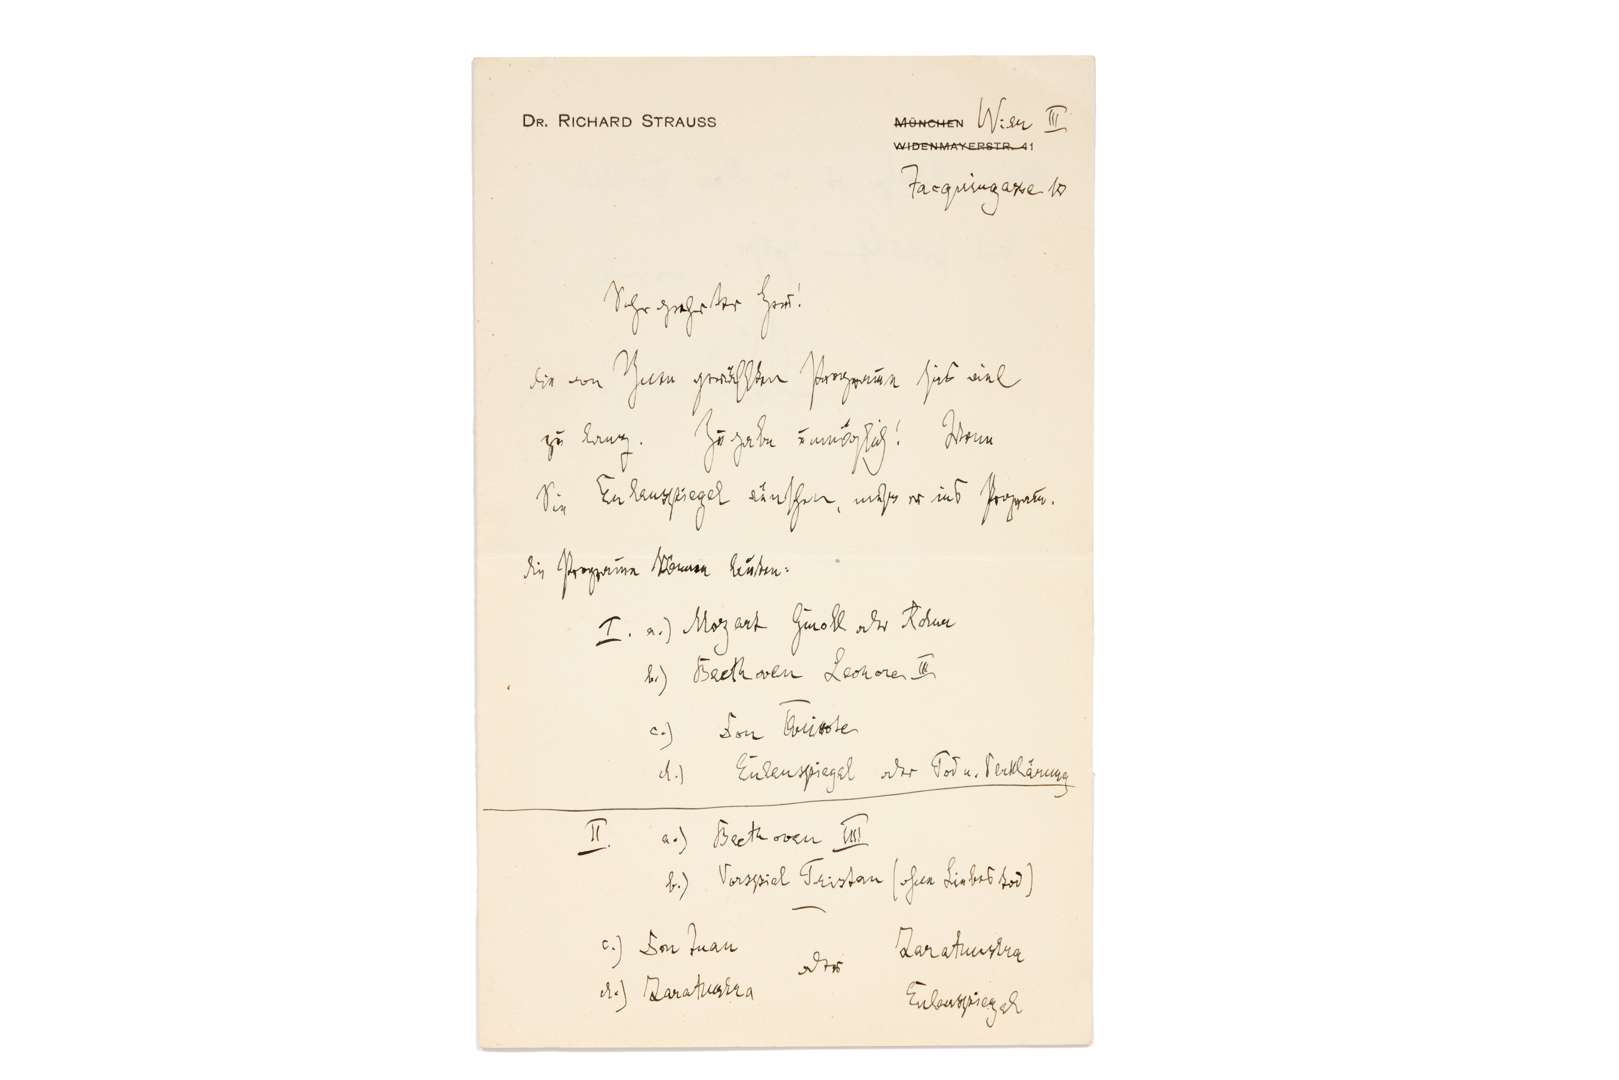 DR. RICHARD STRAUSS
MÜNCHEN Wien III
WIDENMAYERSTR. 41
Jacquingasse 10
Sehr geehrter Herr!
die von Ihnen gewählten Programme sind viel
zu lang. Zugaben unmöglich! Wenn
Sie Eulenspiegel wünschen, muß er ins Programm.
die Programme können lauten:
I. a.) Mozart Gmoll oder
b.) Beethoven Leonore III
c.) Don Quixote
d.) Eulenspiegel oder Tod u. Verklärung
II. a.) Beethoven
b.) Vorspiel Tristan (ohne Liebestod)
c.) Don Juan oder Zarathustra
d.) Zarathustra Eulenspiegel